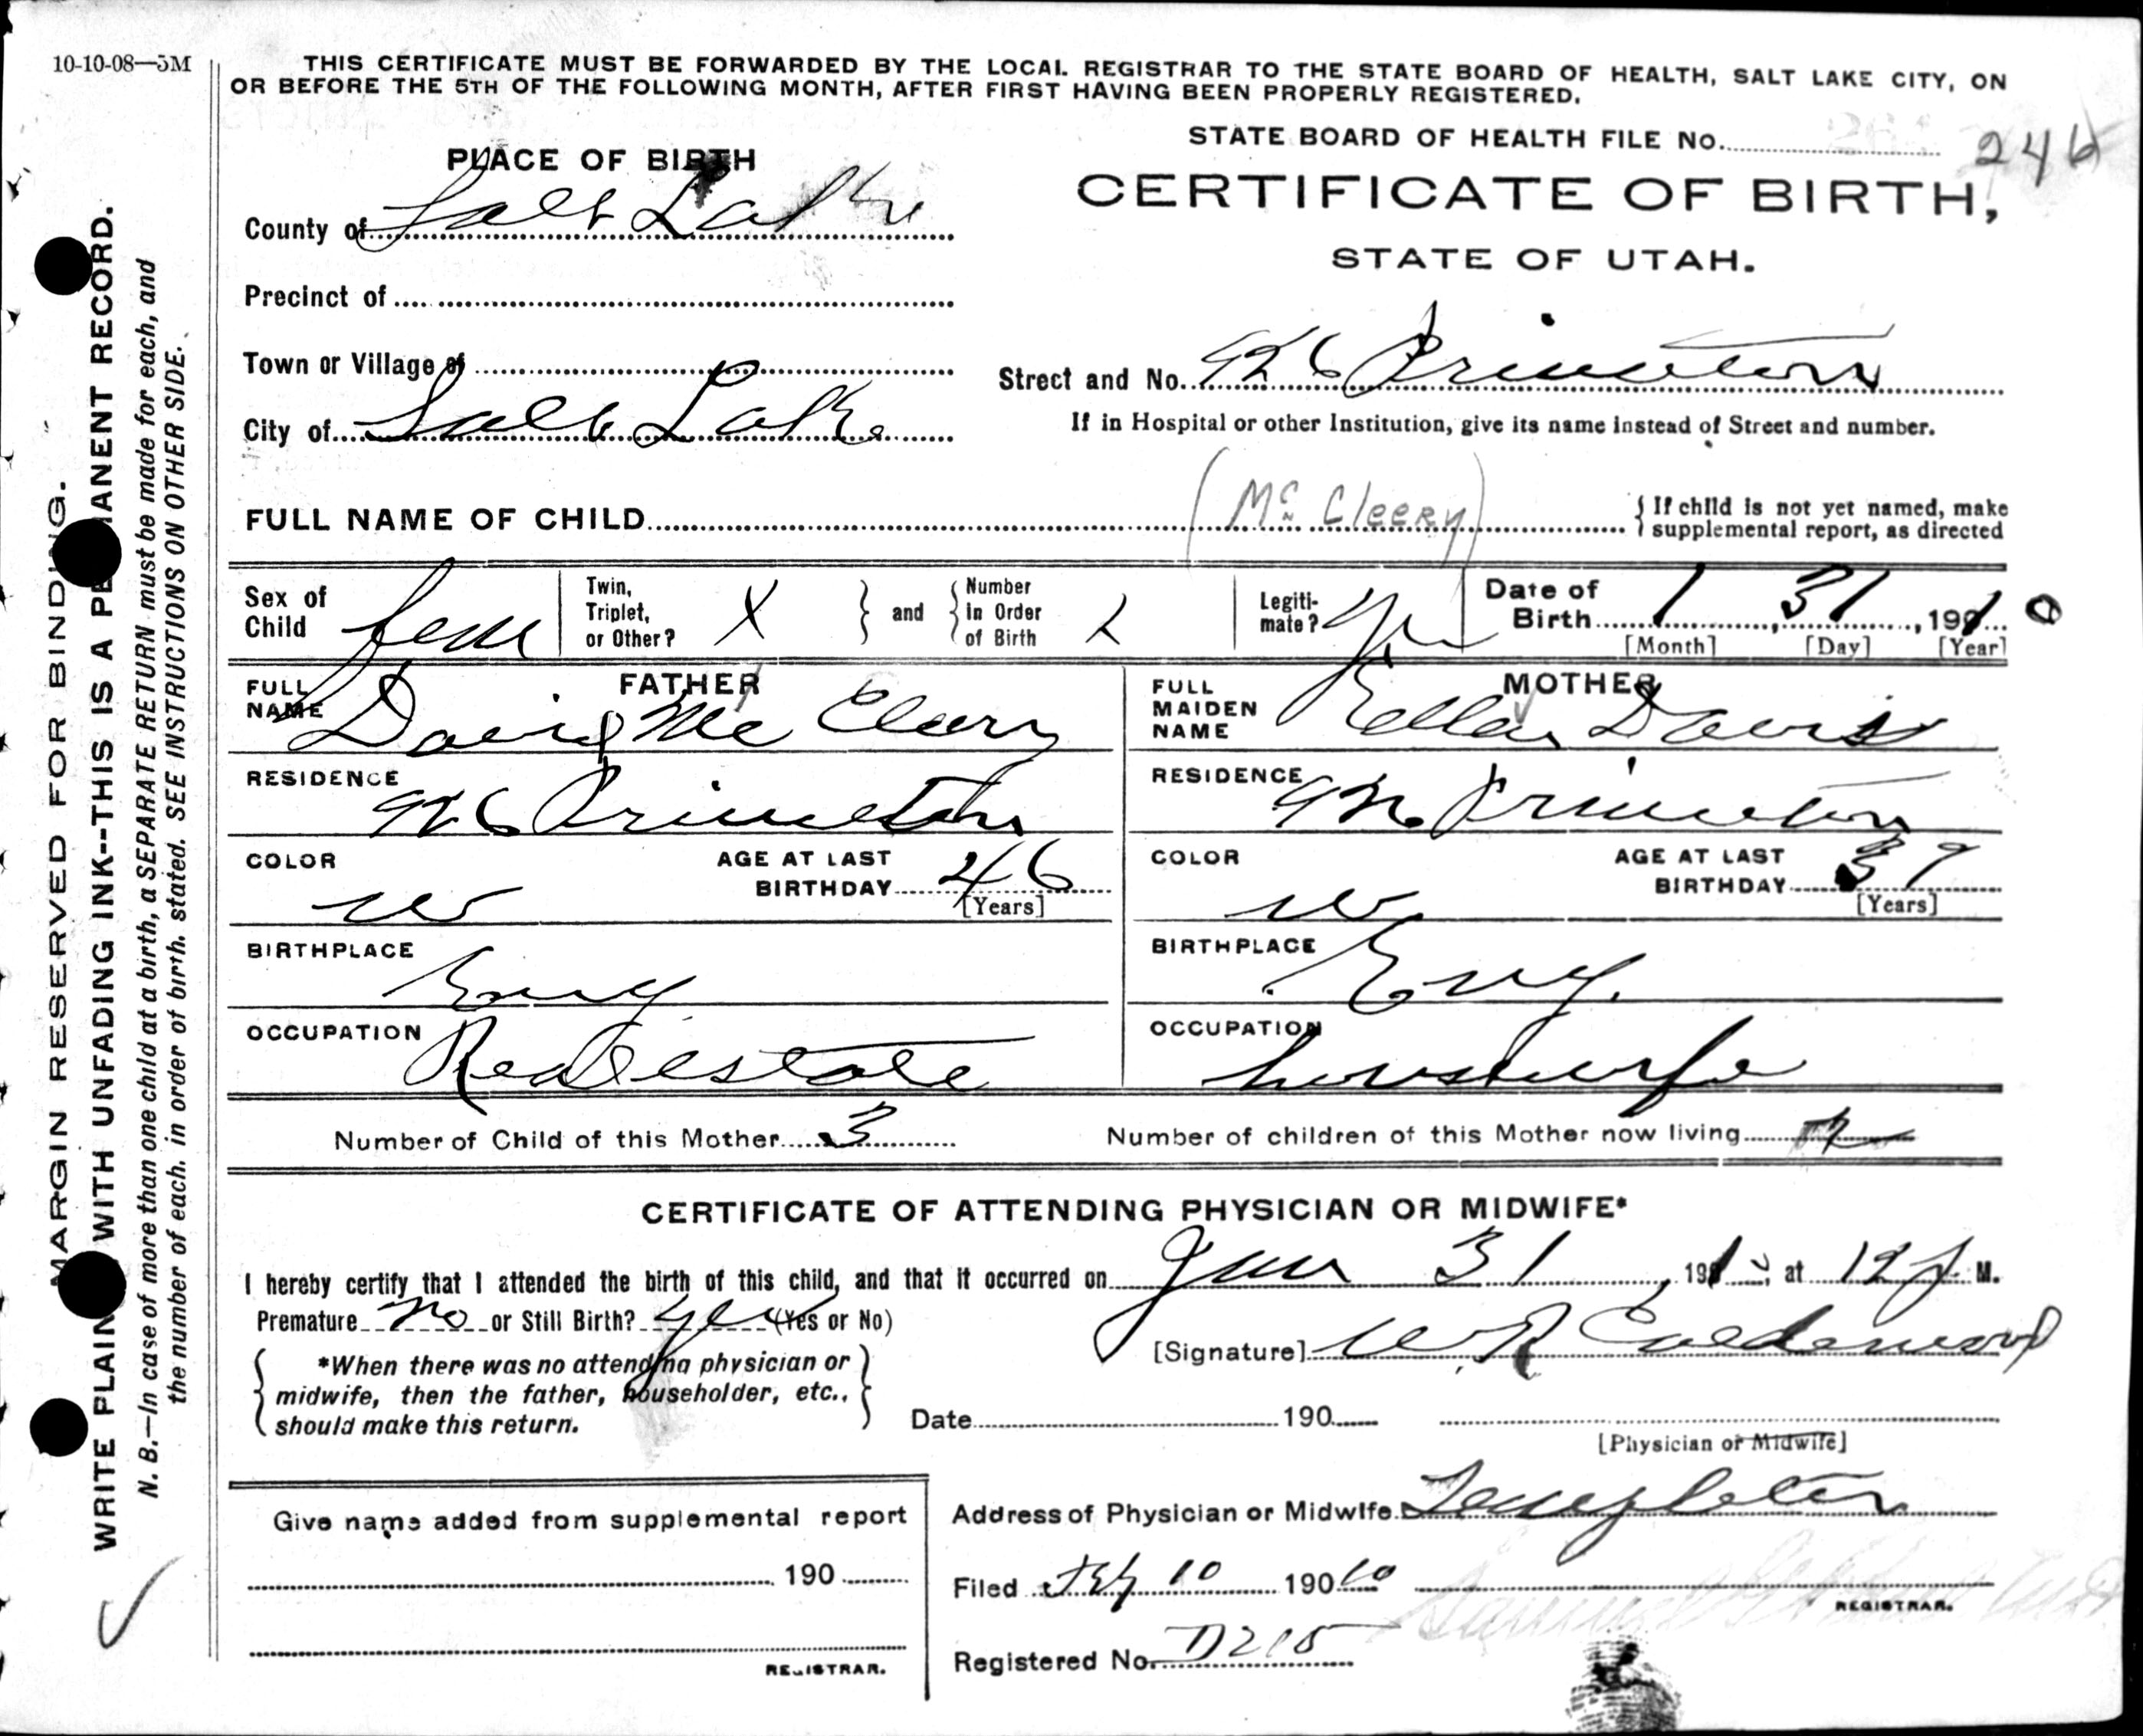 10-10-08—5M
THIS CERTIFICATE MUST BE FORWARDED BY THE LOCAL REGISTRAR TO THE STATE BOARD OF HEALTH, SALT LAKE CITY, ON
OR BEFORE THE 5TH OF THE FOLLOWING MONTH, AFTER FIRST HAVING BEEN PROPERLY REGISTERED.
STATE BOARD OF HEALTH FILE No. 246
PLACE OF BIRTH
CERTIFICATE OF BIRTH,
STATE OF UTAH.
County of Salt Lake
Precinct of
Town or Village of
Street and No. 926 Princeton
City of Salt Lake
If in Hospital or other Institution, give its name instead of Street and number.
FULL NAME OF CHILD (Mc Cleery) { If child is not yet named, make
supplemental report, as directed
Sex of Child fem
Twin, Triplet, or Other? X } and { Number in Order of Birth
Legiti-mate? yes
Date of Birth 1, 31, 1910
[Month] [Day] [Year]
FATHER
FULL NAME David Mc Cleery
MOTHER
FULL MAIDEN NAME Ella Davis
RESIDENCE 926 Princeton
RESIDENCE 926 Princeton
COLOR w
AGE AT LAST BIRTHDAY 46
[Years]
COLOR w
AGE AT LAST BIRTHDAY 39
[Years]
BIRTHPLACE Eng
BIRTHPLACE Eng.
OCCUPATION Real estate
OCCUPATION housewife
Number of Child of this Mother 3
Number of children of this Mother now living 2
CERTIFICATE OF ATTENDING PHYSICIAN OR MIDWIFE*
I hereby certify that I attended the birth of this child, and that it occurred on Jan 31, 191 , at 12 M.
Premature no or Still Birth? yes (Yes or No)
[Signature] W. R. Calderwood
{ *When there was no attending physician or
midwife, then the father, householder, etc.,
should make this return. }
Date 190
[Physician or Midwife]
Give name added from supplemental report
190
REGISTRAR.
Address of Physician or Midwife Templeton
Filed Feb 10 190 10
REGISTRAR.
Registered No. D215
MARGIN RESERVED FOR BINDING.
WRITE PLAINLY WITH UNFADING INK--THIS IS A PERMANENT RECORD.
N. B.—In case of more than one child at a birth, a SEPARATE RETURN must be made for each, and
the number of each, in order of birth, stated. SEE INSTRUCTIONS ON OTHER SIDE.